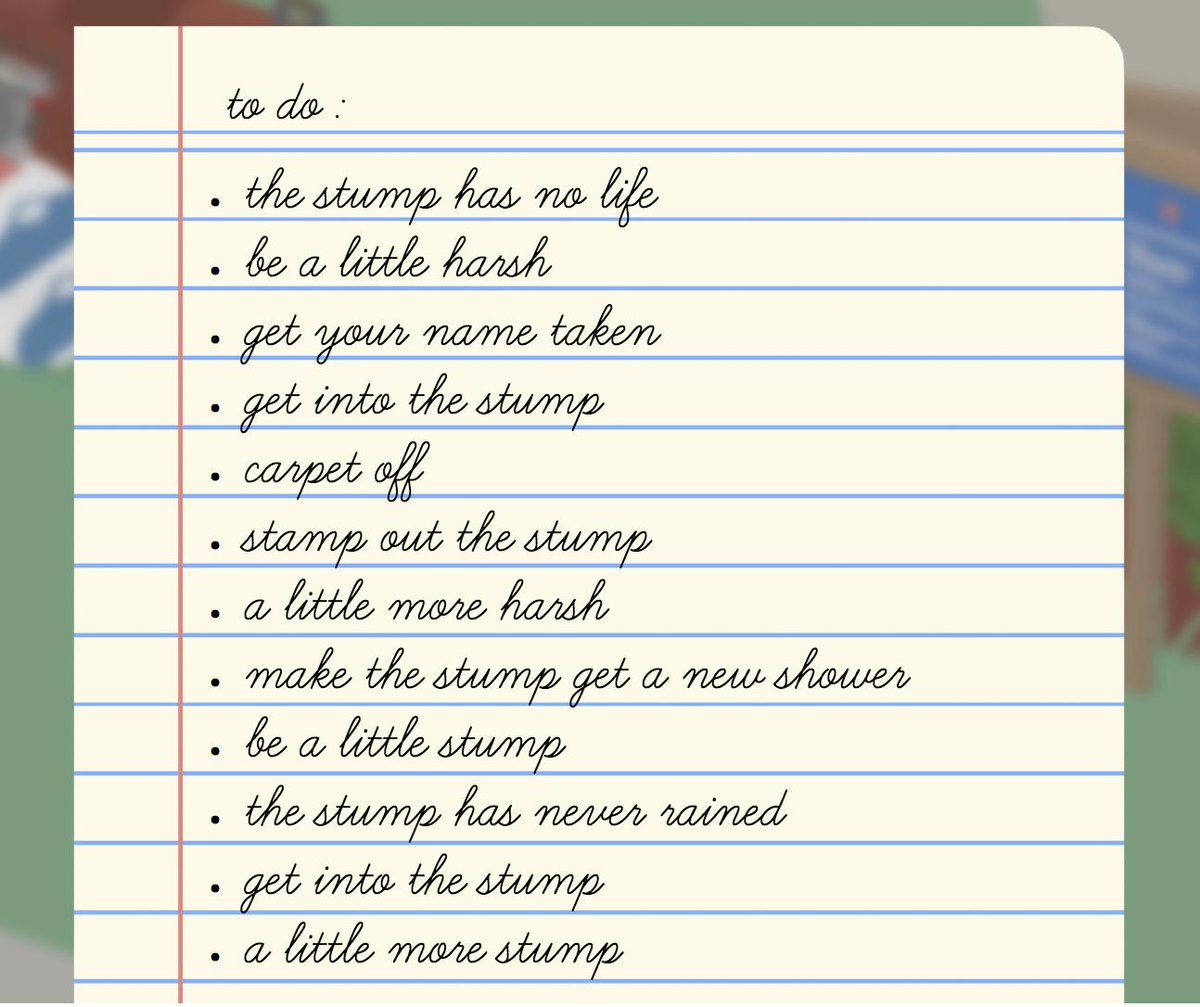 to do :
. the stump has no life
. be a little harsh
. get your name taken
. get into the stump
. carpet off
. stamp out the stump
. a little more harsh
. make the stump get a new shower
. be a little stump
. the stump has never rained
. get into the stump
. a little more stump